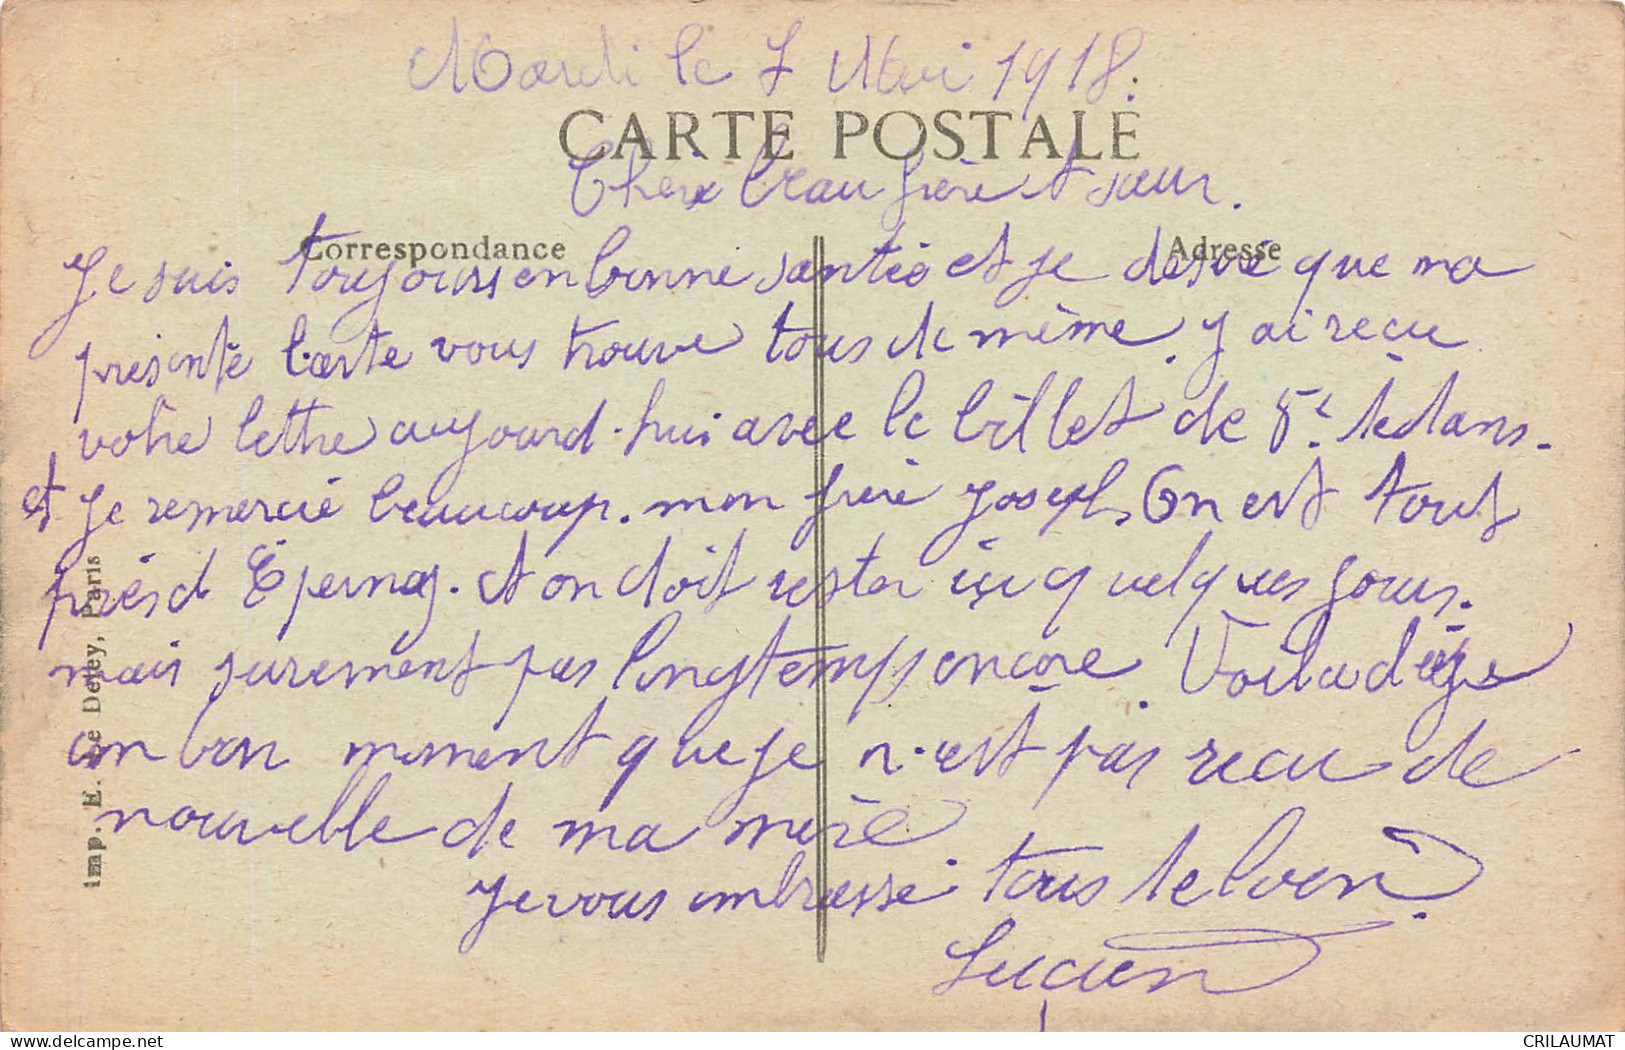 Mardi le 7 Mai 1918.
CARTE POSTALE
Cher beau frère et sœur.
Correspondance
Adresse
Je suis toujours en bonne santée et je désire que ma
présente carte vous trouve tous de même. J ai recu
votre lettre aujourd-hui avec le billet de 5f. dedans.
et Je remercie beaucoup. mon frère Joseph. On est tout
près d Epernay. et on doit rester içi quelques jours.
mais surement pas longtemps encore. Voila déjà
un bon moment que je n'est pas recu de
nouvelle de ma mère.
Je vous embrasse tous de loin.
Lucien
Imp. E. Le Deley, Paris
delcampe.net
CRILAUMAT